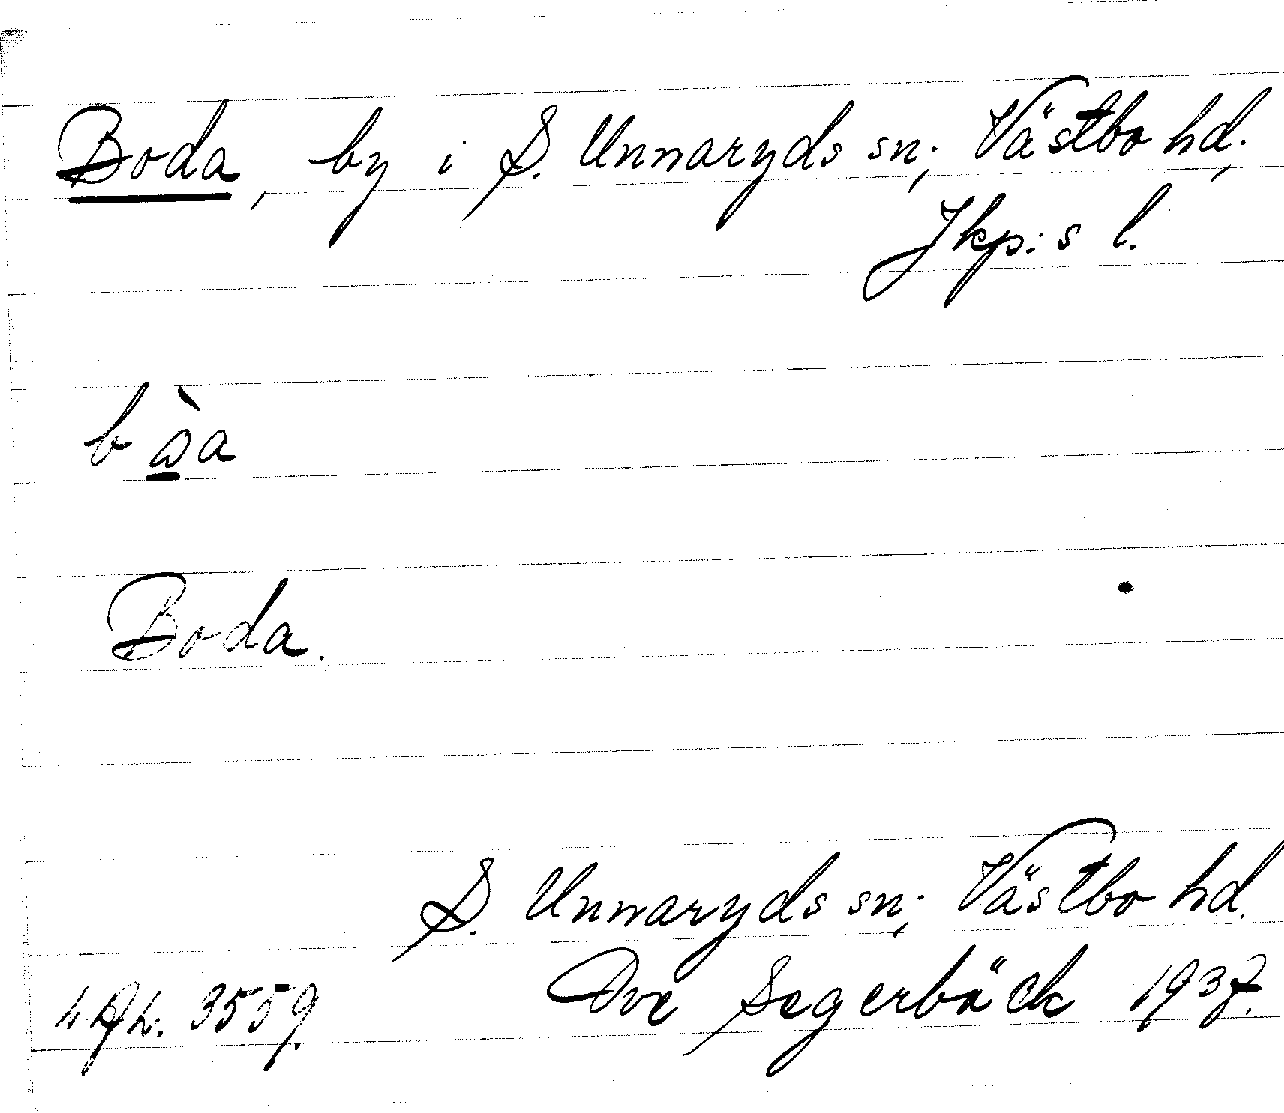 Boda, by i S. Unnaryds sn; Västbo hd.,
Jkp:s l.
Boda.
S. Unnaryds sn; Västbo hd.
Ove Segerbäck 1937.
3559.